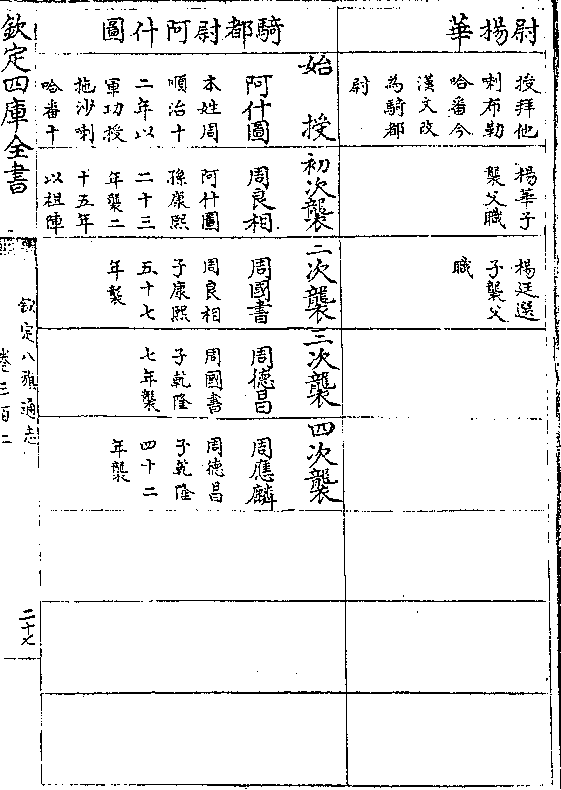 尉揚華
授拜他
喇布勒
哈番今
漢文改
為騎都
尉
楊華子
襲父職
楊廷選
子襲父
職
騎都尉阿什圖
始授
阿什圖
本姓周
順治十
二年以
軍功授
拖沙喇
哈番干
初次襲
周良相
阿什圖
孫康熙
二十三
年襲二
十五年
以祖陣
二次襲
周國書
周良相
子康熙
五十七
年襲
三次襲
周德昌
周國書
子乾隆
七年襲
四次襲
周應麟
周德昌
子乾隆
四十二
年襲
欽定四庫全書
欽定八旗通志
卷三百二
二十七